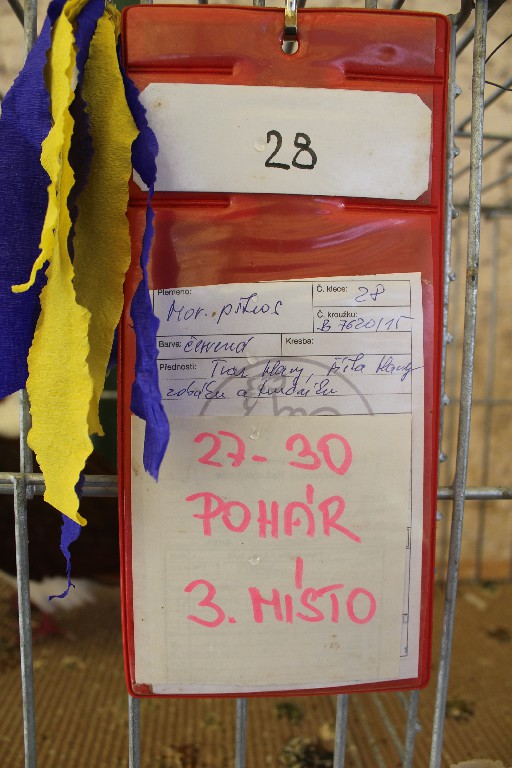 28
Plemeno: Mor. pštros
Č. klece: 28
Č. kroužku: B 7620/15
Barva: červená Kresba:
Přednosti: Tvar hlavy, šířka hlavy
27-30
POHÁR
3. MÍSTO